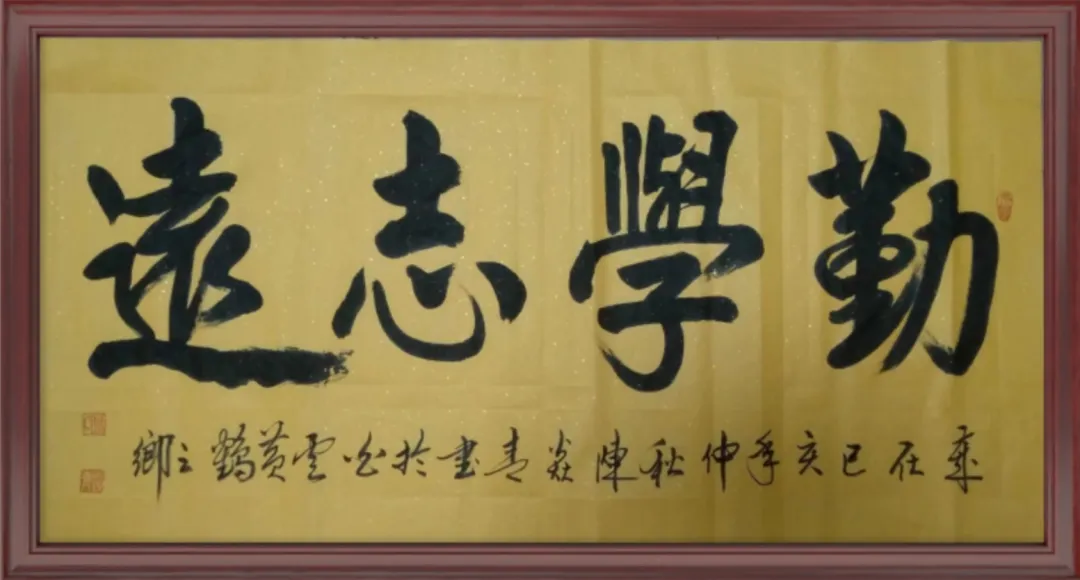 勤學志遠
歲在己亥年仲秋陳焱青書於白雲黃鶴之鄉